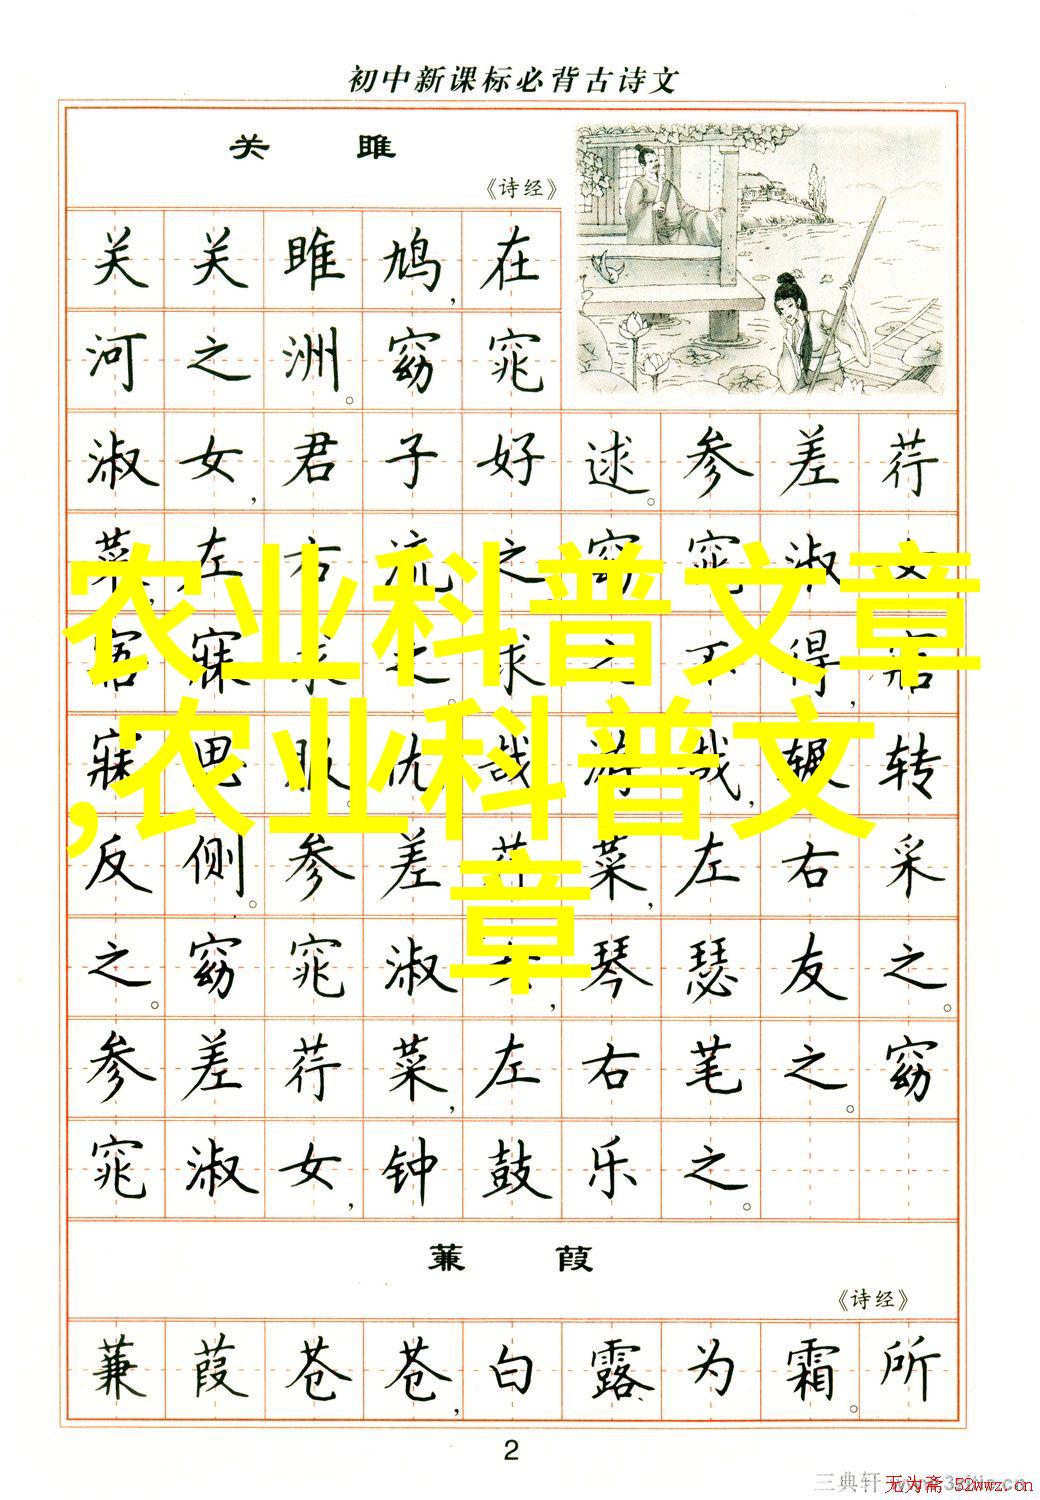 初中新课标必背古诗文
关 雎
《诗经》
关关雎鸠,在
河之洲。窈窕
淑女,君子好逑。参差荇
菜,左右流之,窈窕淑女
寤寐求之。求之不得,寤
寐思服。优哉游哉,辗转
反侧。参差荇菜,左右采
之。窈窕淑女,琴瑟友之。
参差荇菜,左右芼之。窈
窕淑女,钟鼓乐之。
蒹 葭
《诗经》
蒹葭苍苍,白露为霜。所
2
农业科普文章
,农业科普文
章
三典轩
无为斋 52wwz.cn